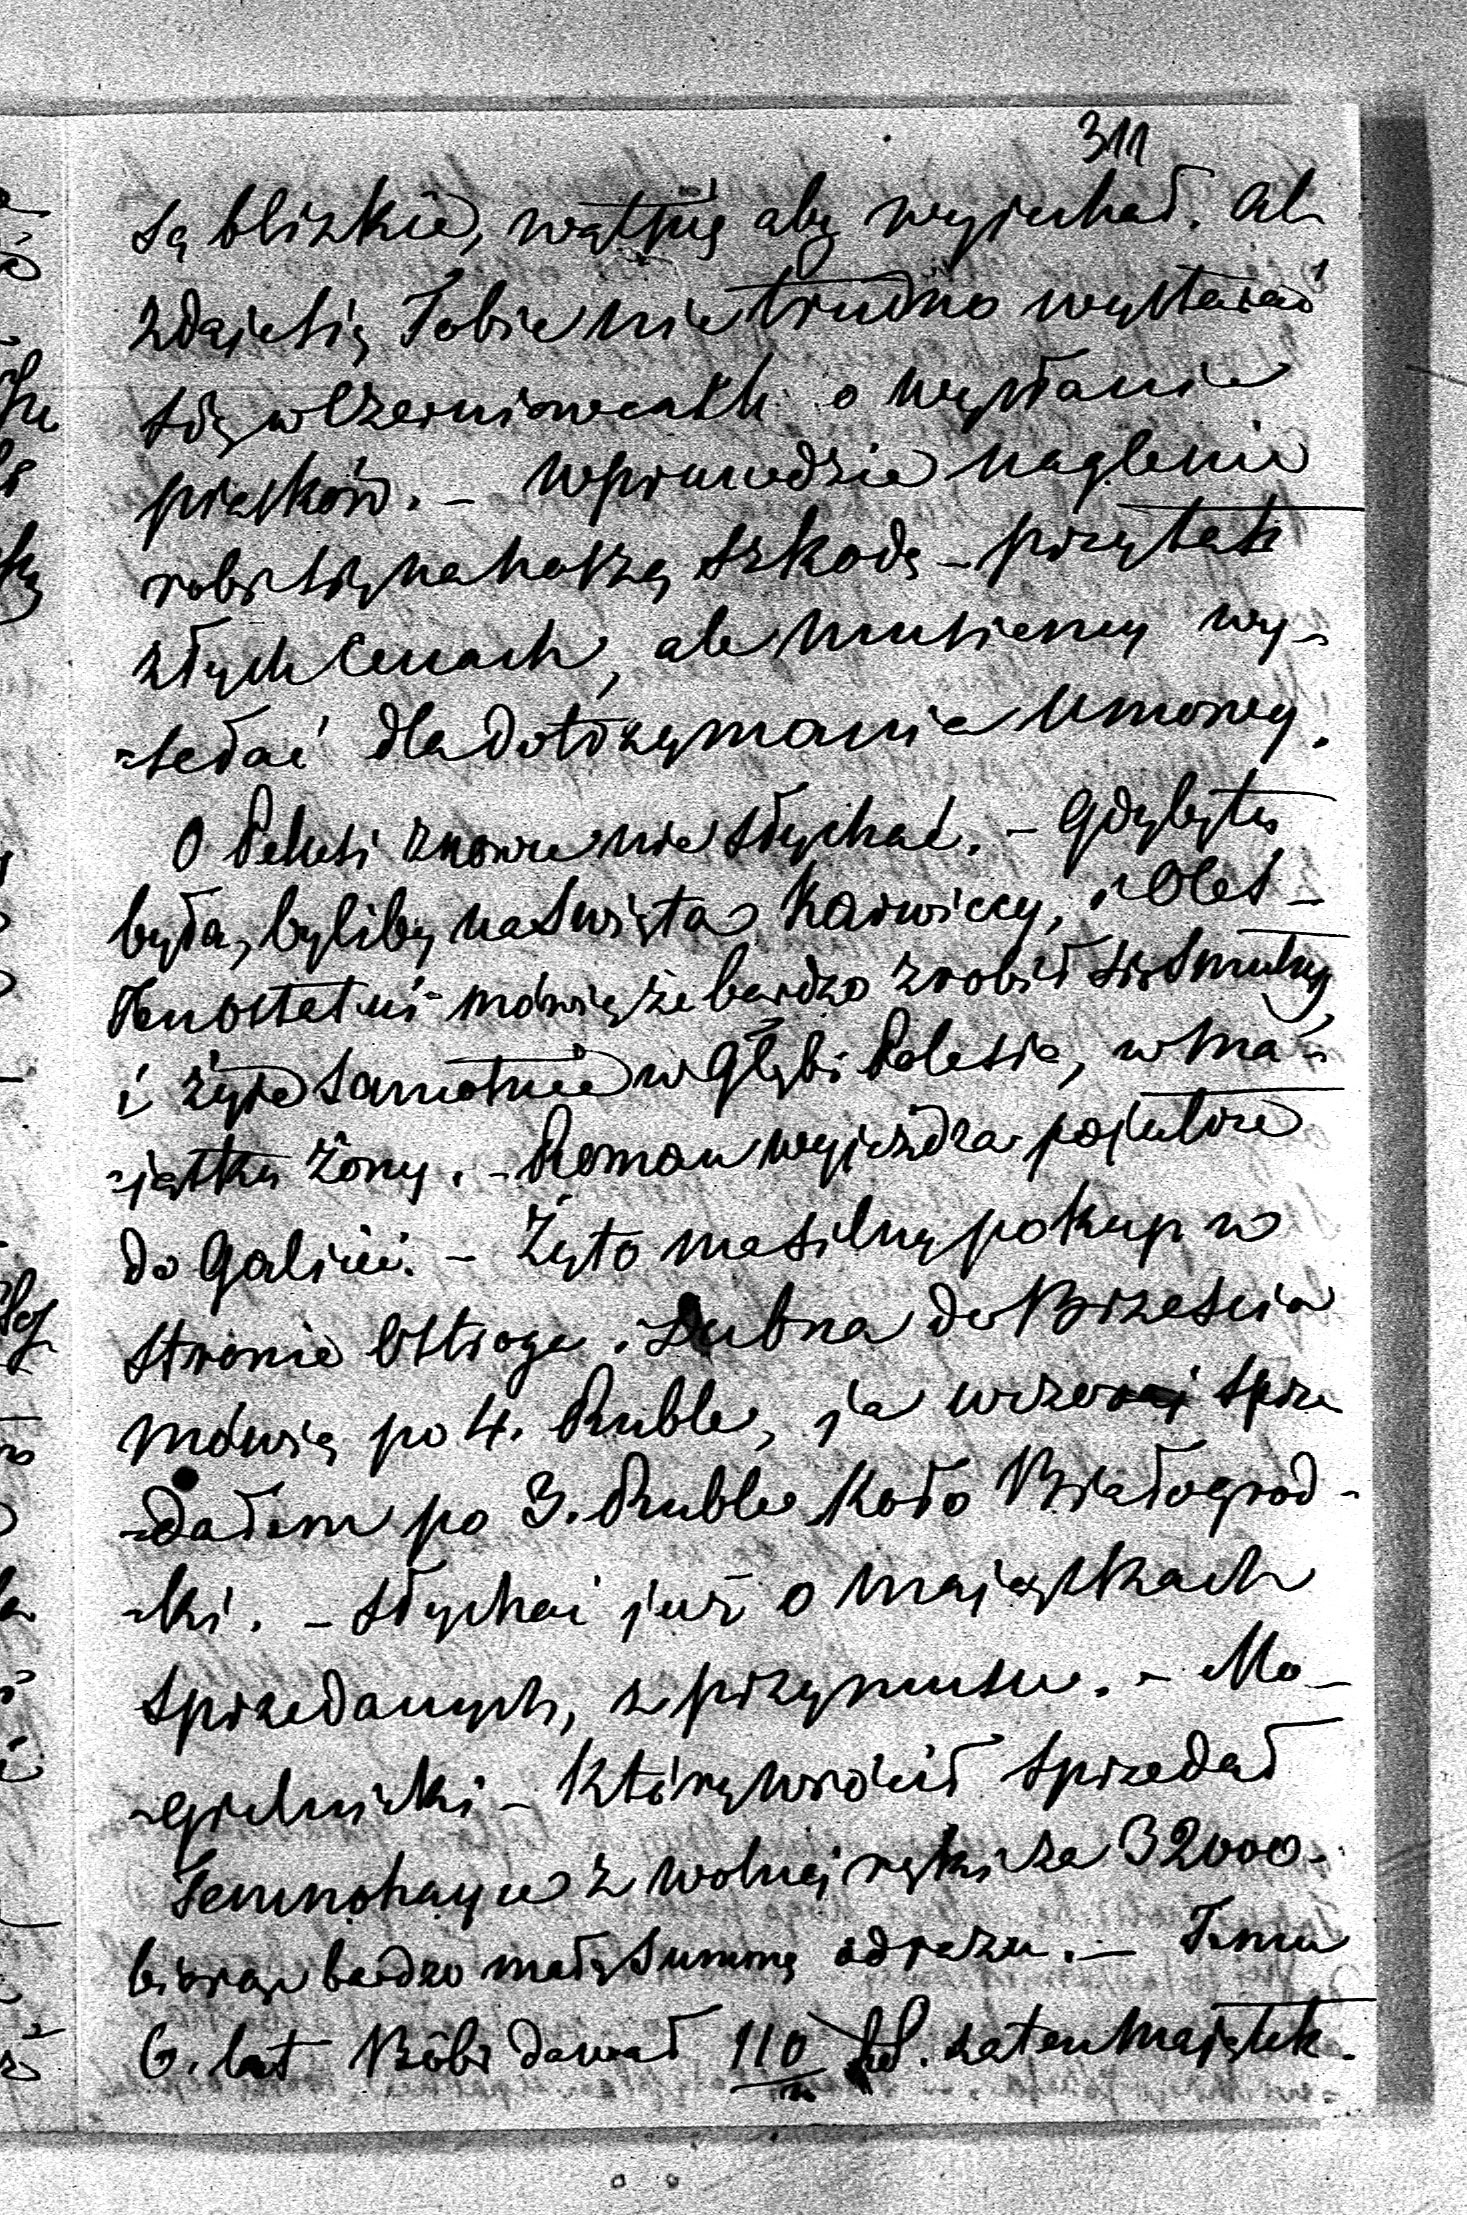 311
są blizkie, wątpię aby wyjechał. Al
zdaje się Tobie nie trudno wystarać
się w Czerniowcach o wysłanie
piasków. – Wprawdzie naglenie
robi się na naszą szkodę – przy tak
złych cenach, ale musiemy wy-
-sełać dla dotrzymania umowy.
O Pelusi znowu nie słychać. – Gdyby tu
była, byliby na Swięta Karwiccy, i Oleś –
Ten ostatni – mówią że bardzo zrobił się smutny
i żyje samotnie w głębi Polesia, w ma-
-jątku żony. – Roman wyjeżdża pojutrze
do Galicii. – Żyto ma silny pokup w
stronie Ostroga. Dubna do Brześcia
mówią po 4. Ruble, ja wczoraj sprze
-dałem po 3. Ruble koło Białogrod-
-ki. – Słychać już o majątkach
sprzedanych, z przymusu. – Mo-
-gielnicki – który wrócił sprzedał
Temnohayce z wolnej ręki za 32000 –
biorąc bardzo małą summę odrazu. – Temu
6. lat Bóbr dawał 110 za ten majątek.